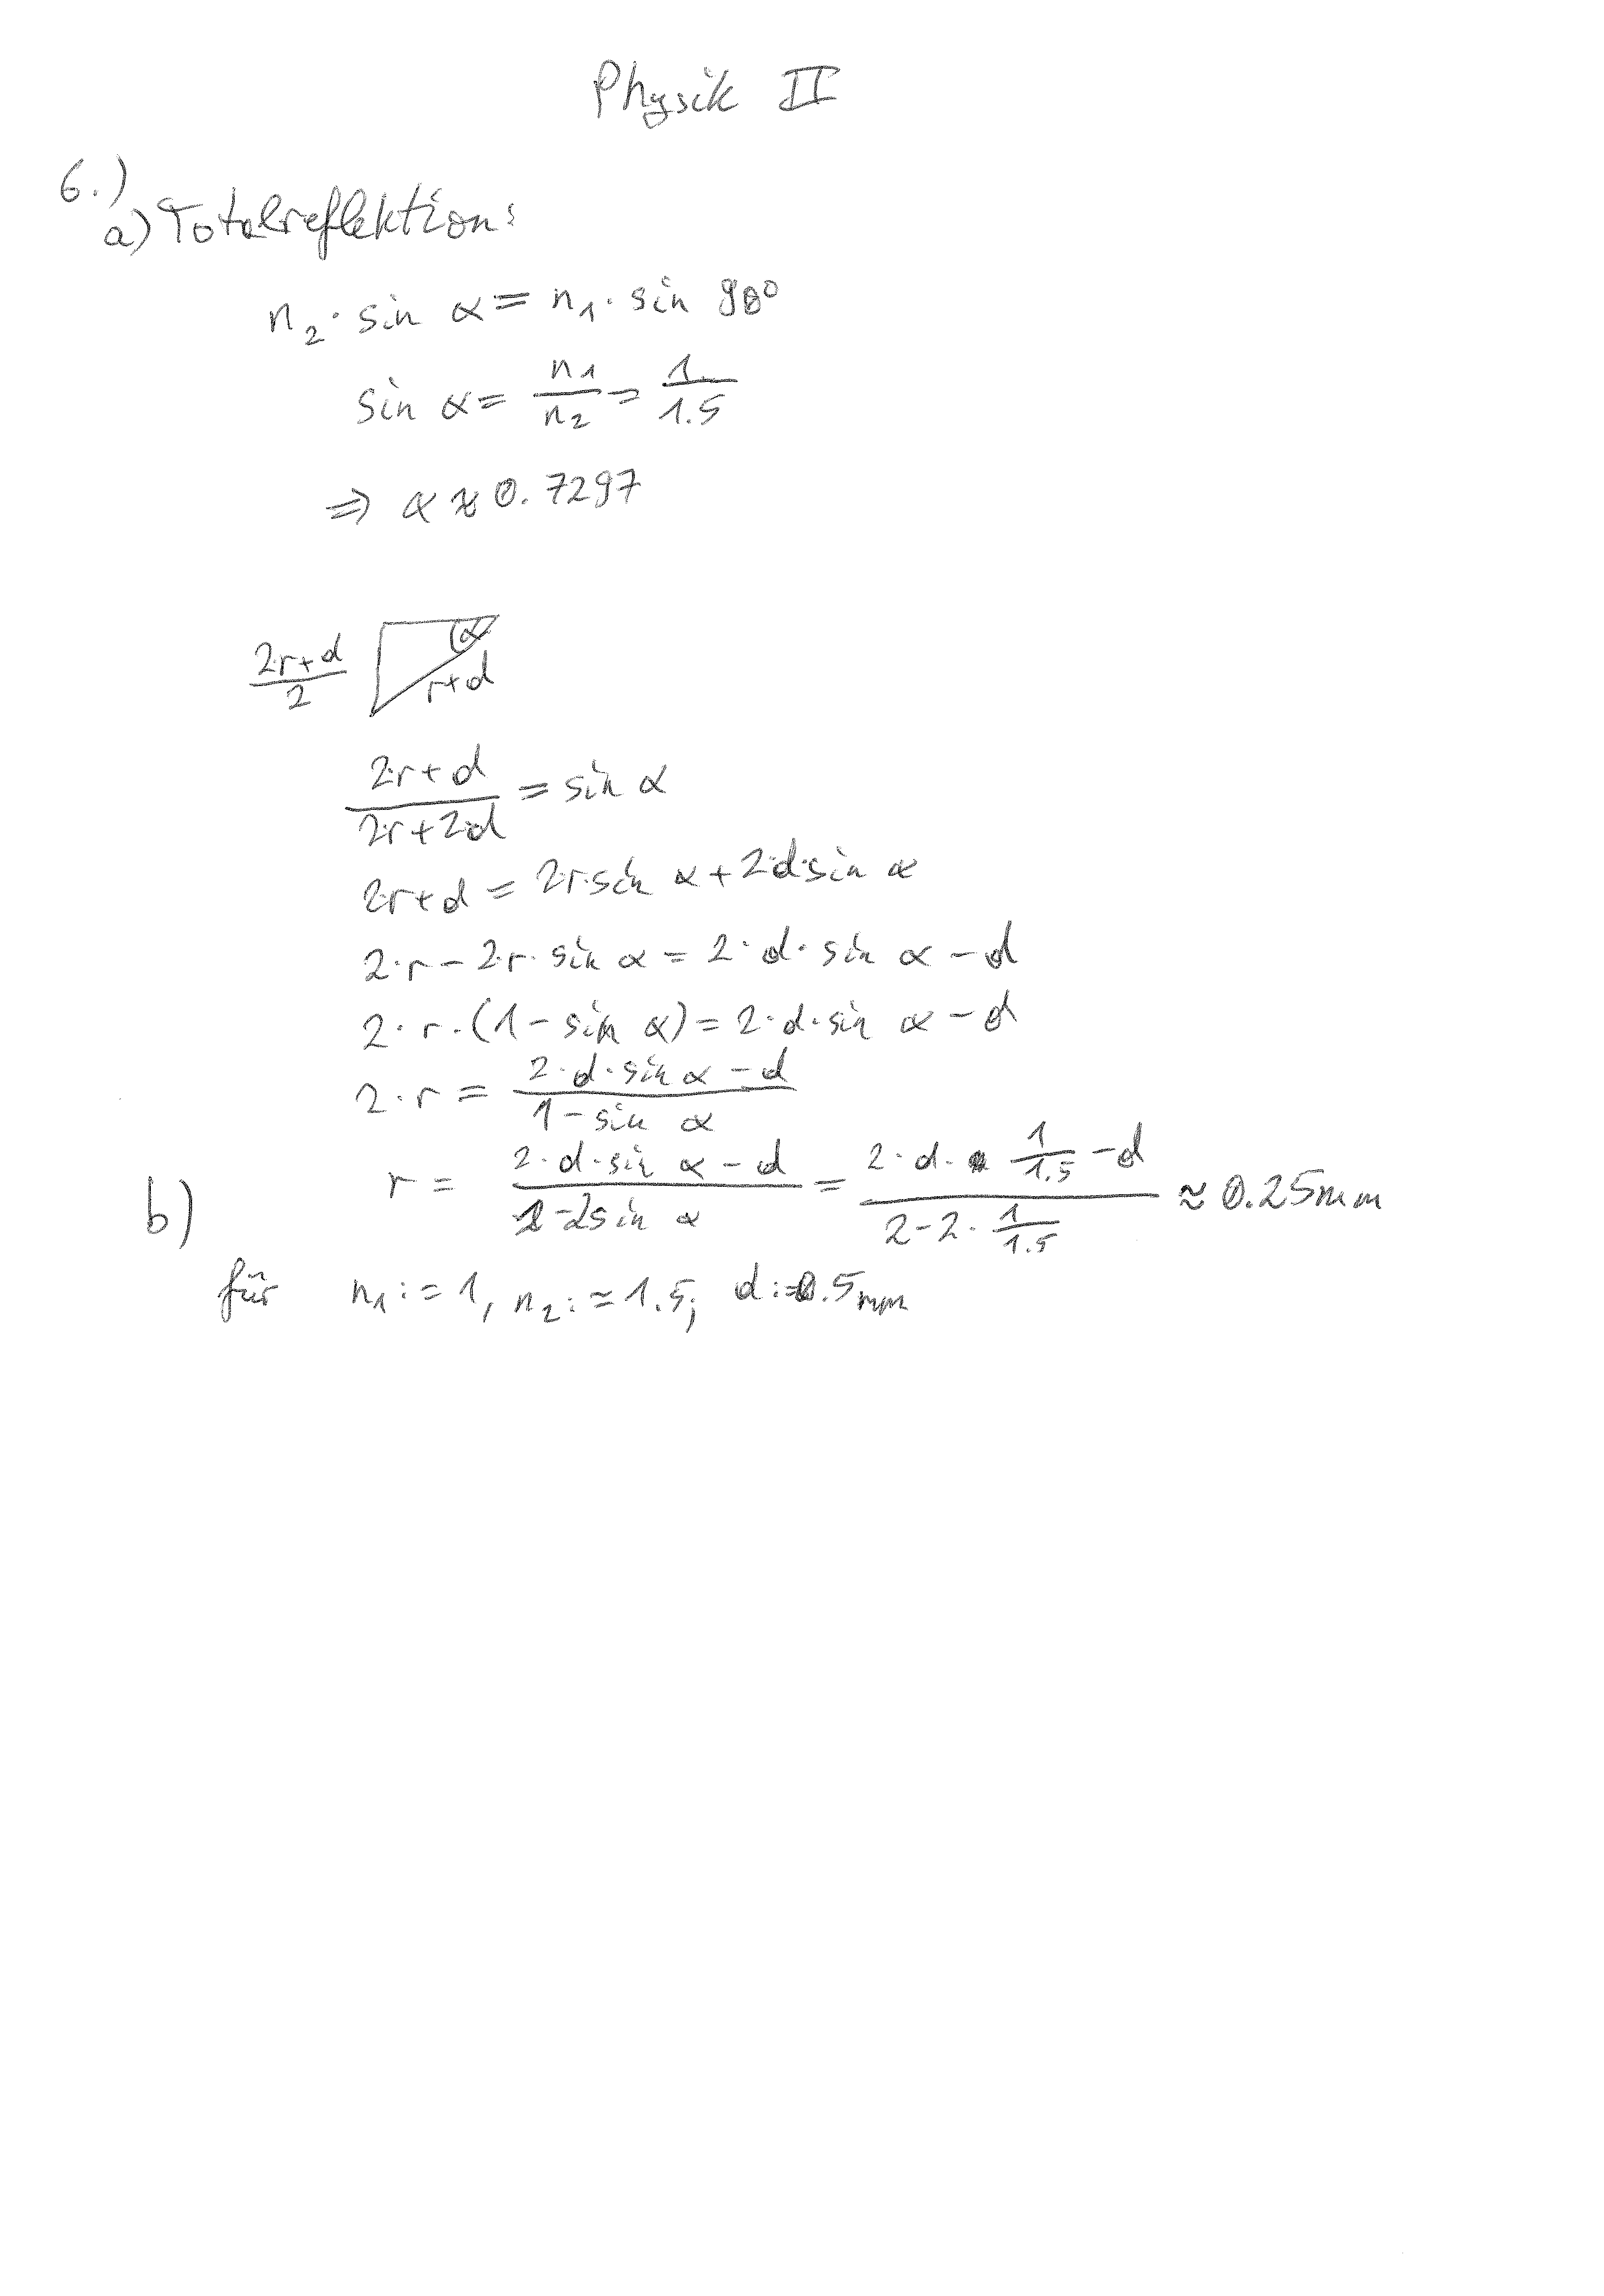 Physik II
6.)
a) Totalreflektion:
n₂ · sin α = n₁ · sin 90°
sin α = n₁/n₂ = 1/1.5
⇒ α ≈ 0.7297
(2·r+d)/2
α
r+d
(2·r+d)/(2·r+2·d) = sin α
2r+d = 2·r·sin α + 2·d·sin α
2·r - 2·r·sin α = 2·d·sin α - d
2·r·(1 - sin α) = 2·d·sin α - d
2·r = (2·d·sin α - d)/(1 - sin α)
b) r = (2·d·sin α - d)/(2 - 2 sin α) = (2·d·1/1.5 - d)/(2 - 2·1/1.5) ≈ 0.25mm
für n₁:=1, n₂:=1.5; d:=0.5mm